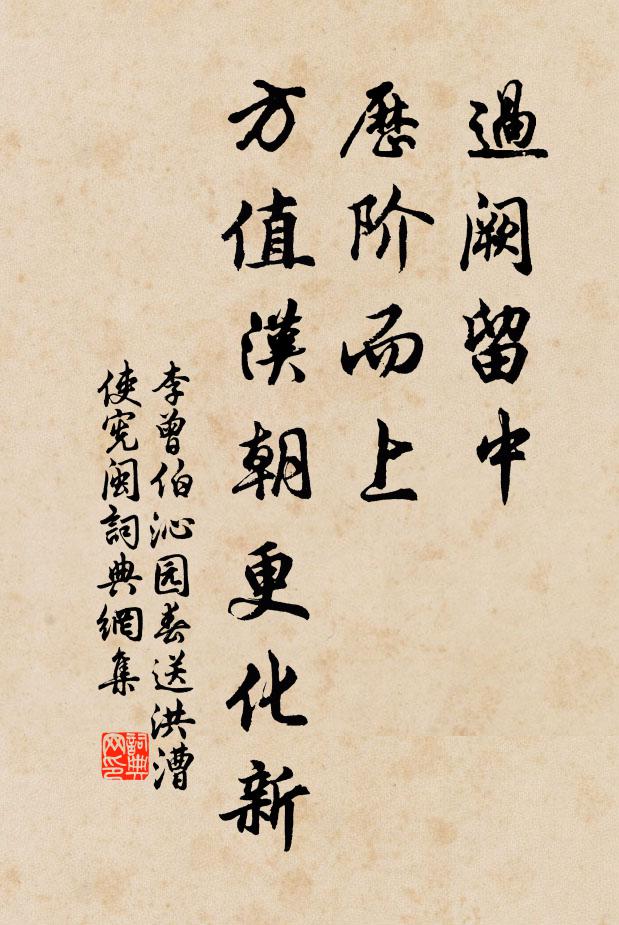 過阙留中
歷阶而上
方值漢朝更化新
李曾伯沁园春送洪漕
使宪闽詞典網集
詞典
网印